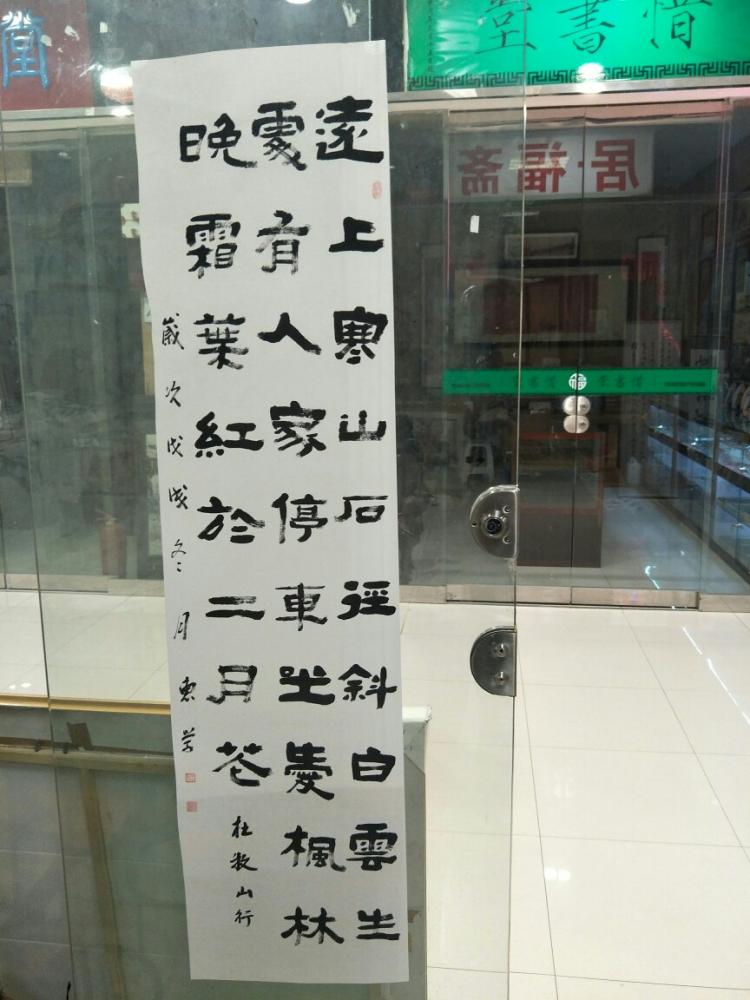 惜書堂
堂
居·福斋
遠上寒山石徑斜白雲生
處有人家停車坐愛楓林
晚霜葉紅於二月花 杜牧山行
歲次戊戌冬月